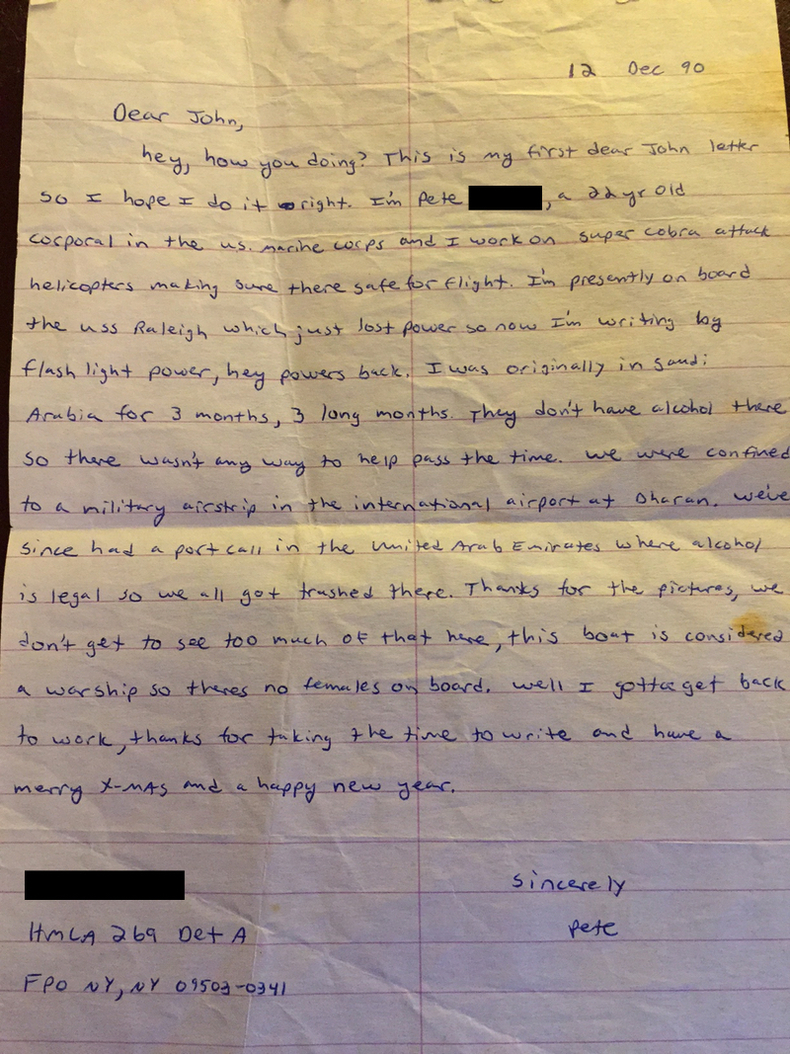 12 Dec 90
Dear John,
hey, how you doing? This is my first dear John letter
so I hope I do it right. I'm Pete , a 22 yr old
corporal in the u.s. marine corps and I work on super cobra attack
helicopters making sure there safe for flight. I'm presently on board
the uss Raleigh which just lost power so now I'm writing by
flash light power, hey powers back. I was originally in saudi
Arabia for 3 months, 3 long months. They don't have alcohol there
so there wasn't any way to help pass the time. we were confined
to a military airstrip in the international airport at Dharan. we've
since had a port call in the United Arab Emirates where alcohol
is legal so we all got trashed there. Thanks for the pictures, we
don't get to see too much of that here, this boat is considered
a warship so theres no females on board. well I gotta get back
to work, thanks for taking the time to write and have a
merry X-MAS and a happy new year.
sincerely
Pete
HMLA 269 Det A
FPO NY, NY 09503-0341